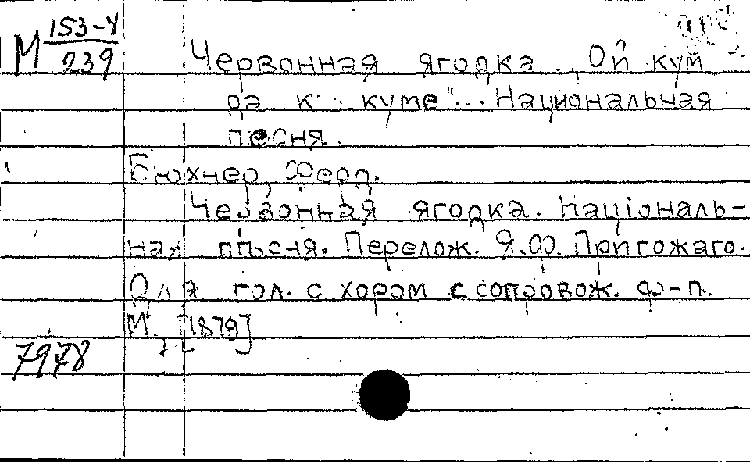 М 153-У/239
Червонная ягодка. „Ой кум
да к куме"... Национальная
песня.
Бюхнер, Ферд.
Червонная ягодка. Націоналъ-
ная пѣсня. Перелож. Я.Ф. Пригожаго.
Для гол. с хором с сопровож. ф-п.
М., [1879]
7978